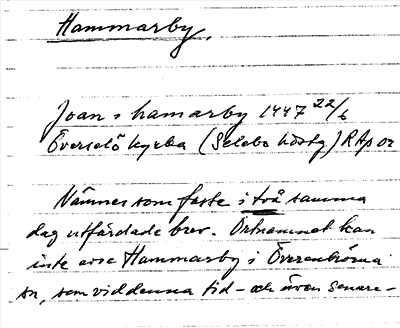 Hammarby.
Joan i hamarby 1447 22/6
Överselö kyrka (Selebo hdstg) RAp or
Nämnes som faste i två samma
dag utfärdade brev. Ortnamnet kan
inte avse Hammarby i Överenhörna
sn, som vid denna tid – och även senare –